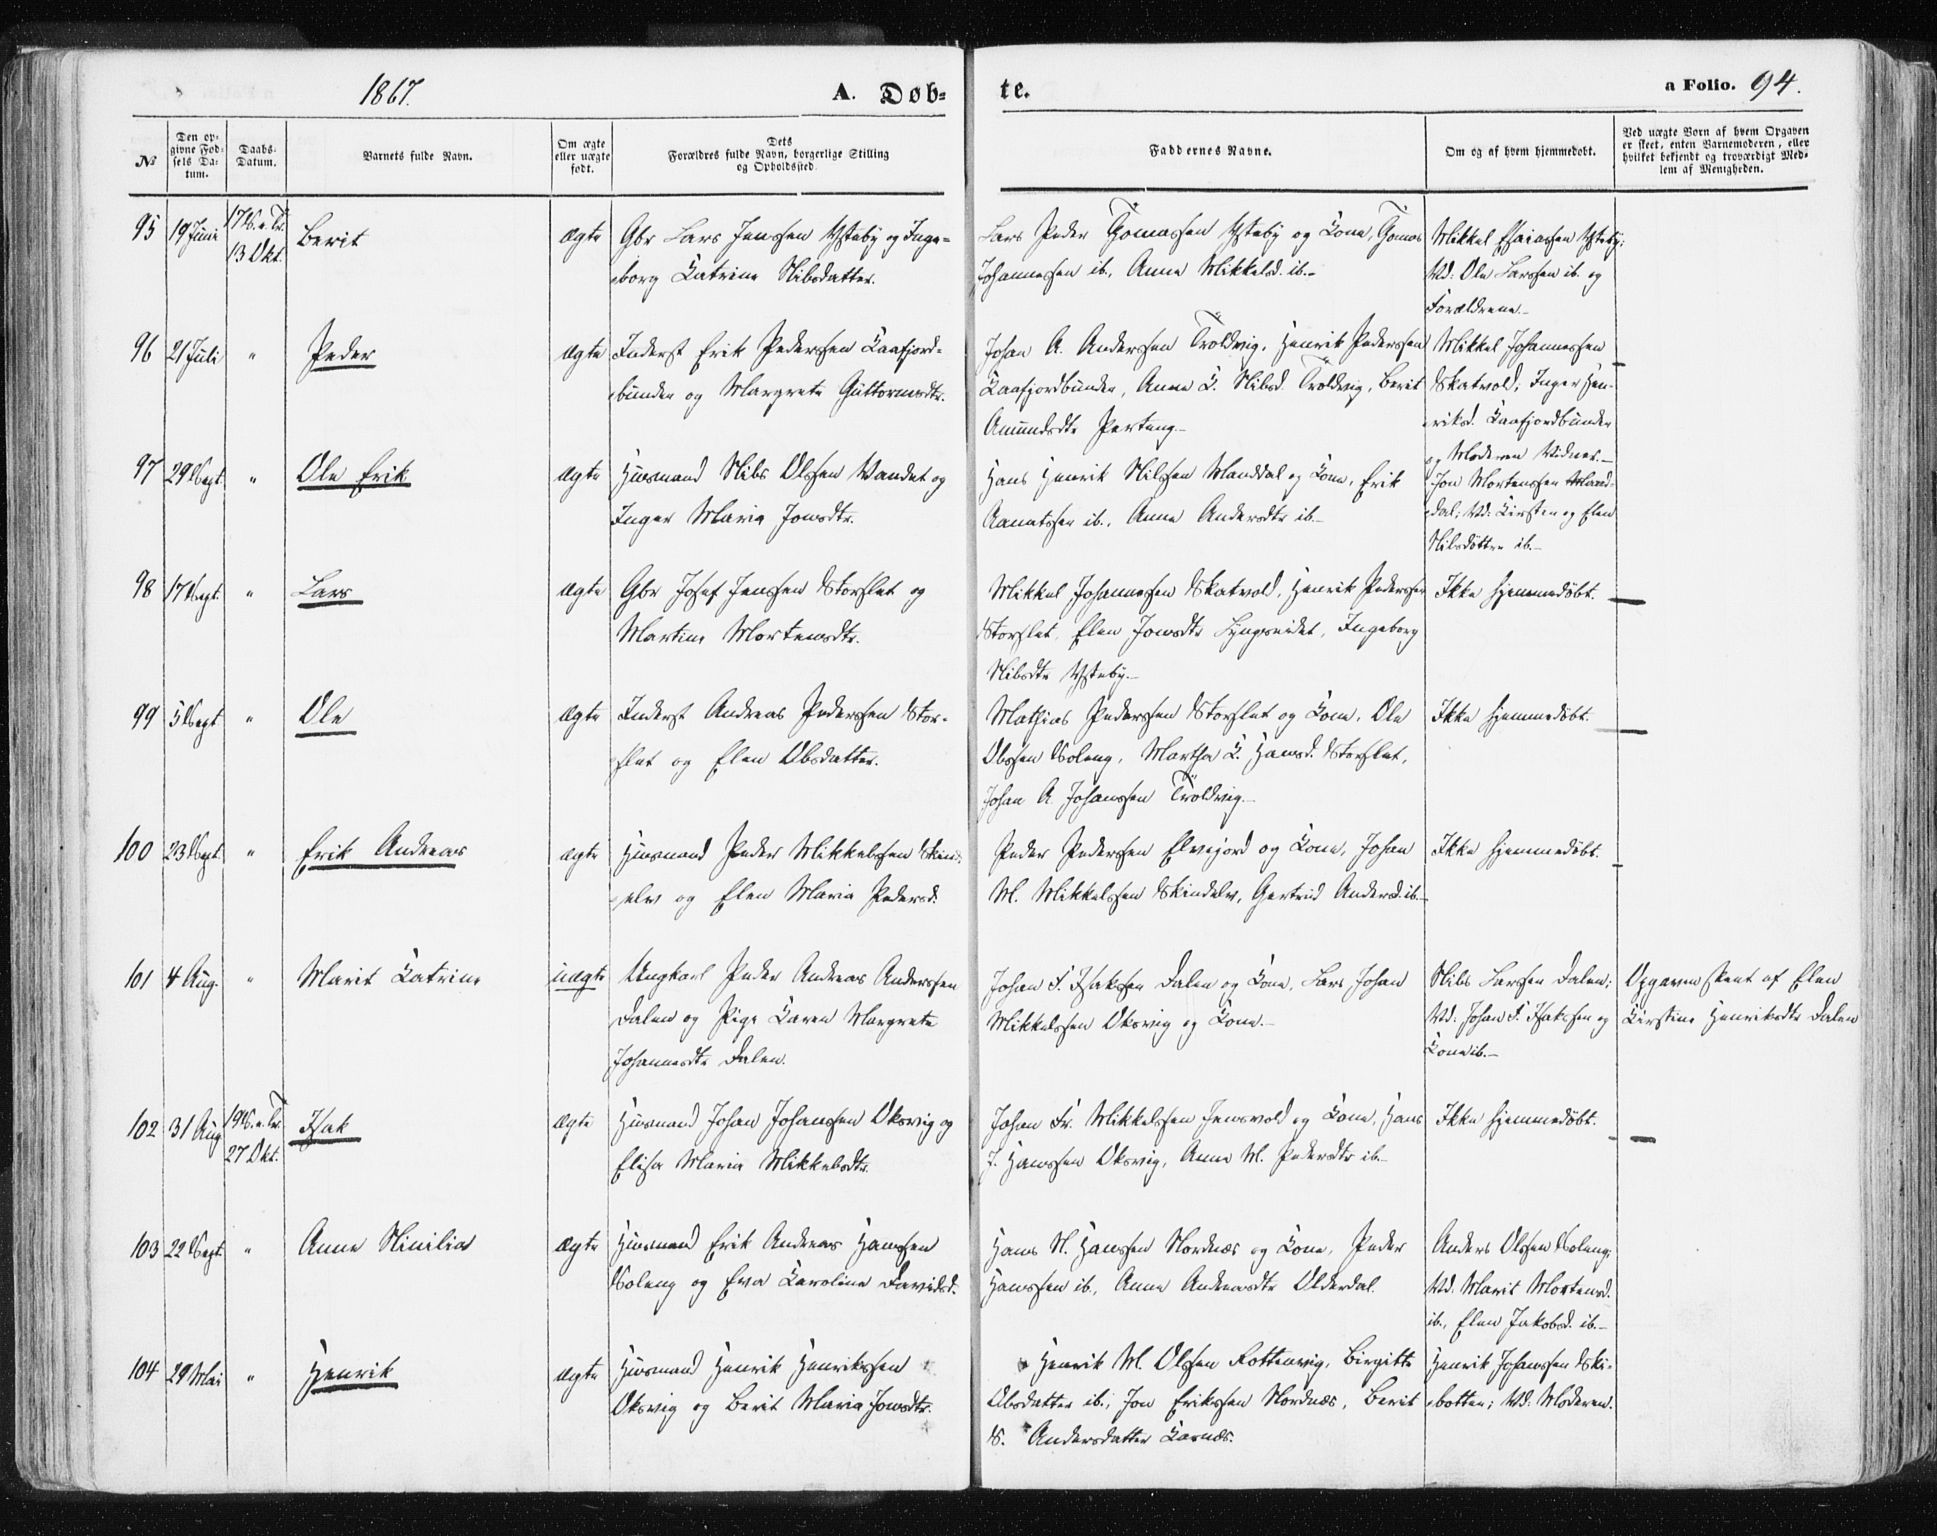 1867.
A. Døb-
te.
a Folio. 94.
№
Den op-
givne Fød-
sels Da-
tum.
Daabs-
Datum.
Barnets fulde Navn.
Om ægte
eller uægte
født.
Dets
Forældres fulde Navn, borgerlige Stilling
og Opholdssted.
Faddernes Navne.
Om og af hvem hjemmedøbt.
Ved uægte Børn af hvem Opgaven
er skeet, enten Barnemoderen, eller
hvilket bekjendt og troværdigt Med-
lem af Menigheden.
95
19 Juni
17 S. e. Tr.
13 Okt.
Berit
Ægte
Gbr Lars Jenssen Ysteby og Inge-
borg Katrine Nilsdatter.
Lars Peder Tomassen Ysteby og Kone, Tomas
Johannessen ib., Anne Mikkelsd. ib.-
Mikkel Esaiassen Ysteby;
Vd: Ole Larssen ib. og
Forældrene.-
96
21 Juli
"
Peder
Ægte
Inderst Erik Pederssen Kaafjord-
bunden og Margrete Guttormsdtr.
Johan A. Anderssen Troldvig, Henrik Pederssen
Kaafjordbunden, Anne K. Nilsd. Troldvig, Berit
Amundsdtr Perteng.-
Mikkel Johannessen
Skatvold; Inger Hen-
riksd. Kaafjordbunden
og Moderen Vidner.-
97
29 Sept.
"
Ole Erik
Ægte
Husmand Nils Olssen Vandet og
Inger Maria Jonsdtr.
Hans Henrik Nilssen Manddal og Kone, Erik
ib., Anne Andersdtr ib.-
Jon Mortenssen Mand-
dal; Vd: Kirsten og Elen
Nilsdøttre ib.-
98
17 Sept.
"
Lars
Ægte
Gbr Josef Jenssen Storslet og
Martine Mortensdtr.
Mikkel Johannessen Skatvold, Henrik Pederssen
Storslet, Elen Jonsdtr Lyngseidet, Ingeborg
Nilsdtr Ysteby.-
Ikke hjemmedøbt.
99
5 Sept.
"
Ole
Ægte
Inderst Andreas Pederssen Stor-
slet og Elen Olsdatter.
Mathias Pederssen Storslet og Kone, Ole
Olssen Soleng, Martha K. Hansd. Storslet,
Johan A. Johanssen Troldvig.-
Ikke hjemmedøbt.
100
23 Sept.
"
Erik Andreas
Ægte
Husmand Peder Mikkelssen Skind-
elv og Elen Maria Pedersd.
Peder Pederssen Elvejord og Kone, Johan
M. Mikkelssen Skindelv, Gertrud Andersd. ib.-
Ikke hjemmedøbt.
101
4 Aug.
"
Marit Katrine
Uægte
Ungkarl Peder Andreas Anderssen
Dalen og Pige Karen Margrete
Johannesdtr Dalen.
Johan I. Isakssen Dalen og Kone, Lars Johan
Mikkelssen Oksvig og Kone.-
Nils Larssen Dalen;
Vd. Johan I. Isakssen og
Kone ib.-
Opgaven skeet af Elen
Kirstine Henriksdtr Dalen
102
31 Aug
19 S. e. Tr.
27 Okt.
Isak
Ægte
Husmand Johan Johanssen Oksvig og
Elisa Maria Mikkelsdtr.
Johan Fr. Mikkelssen Jensvold og Kone, Hans
J. Hanssen Oksvig, Anne M. Pedersdtr ib.-
Ikke hjemmedøbt.
103
22 Sept.
"
Anne Ninilia
Ægte
Husmand Erik Andreas Hanssen
Soleng og Eva Karoline Davidsd.
Hans N. Hanssen Nordnæs og Kone, Peder
Hanssen ib., Anne Andreasdtr Olderdal.
Anders Olssen Soleng;
Vd. Marit Mortensd.
ib., Elen Jakobsd. ib.-
104
29 Mai
"
Henrik
Ægte
Husmand Henrik Henrikssen
Oksvig og Berit Maria Jonsdtr.
Henrik M. Olssen Rottenvig, Birgitte
Olsdatter ib., Jon Erikssen Nordnæs, Berit
S. Andersdatter Kosnæs.
Henrik Johanssen Ski-
botten; Vd: Moderen.